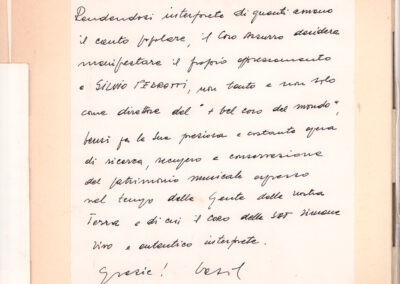 Rendendosi interprete di quanti amano
il canto popolare, il Coro Azzurro desidera
manifestare il proprio apprezzamento
a SILVIO PEDROTTI, non tanto e non solo
come direttore del "+ bel coro del mondo",
bensì per la Sua preziosa e costante opera
di ricerca, recupero e conservazione
del patrimonio musicale espresso
nel tempo dalla Gente della nostra
Terra e di cui il coro della SAT rimane
vivo e autentico interprete.
Grazie!